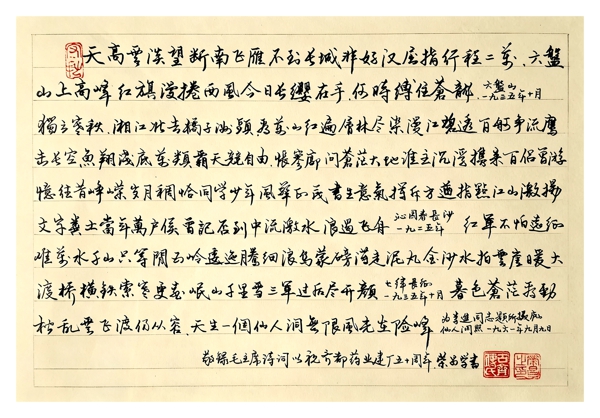 天高雲淡望断南飞雁不到长城非好汉屈指行程二萬 六盤
山上高峰红旗漫捲西風今日长缨在手何時縛住蒼龍 六盤山 一九三五年十月
獨立寒秋湘江北去橘子洲頭看萬山红遍層林尽染漫江碧透百舸争流鹰
击长空魚翔浅底萬類霜天競自由悵寥廓問蒼茫大地谁主沉浮携来百侣曾游
憶往昔峥嵘岁月稠恰同学少年風華正茂書生意氣揮斥方遒指點江山激揚
文字糞土當年萬户侯曾記否到中流激水浪遏飞舟 沁园春長沙 一九二五年 红軍不怕遠征
难萬水千山只等閒五岭逶迤腾细浪烏蒙磅礴走泥丸金沙水拍雲崖暖大
渡桥横铁索寒更喜岷山千里雪三軍过后尽开颜 七律長征 一九三五年十月 暮色蒼茫看勁
松乱雲飞渡仍从容天生一個仙人洞無限風光在险峰 为李進同志题所攝庐山仙人洞照 一九六一年九月九日
敬録毛主席诗词以祝 都药业建厂五十周年 学書